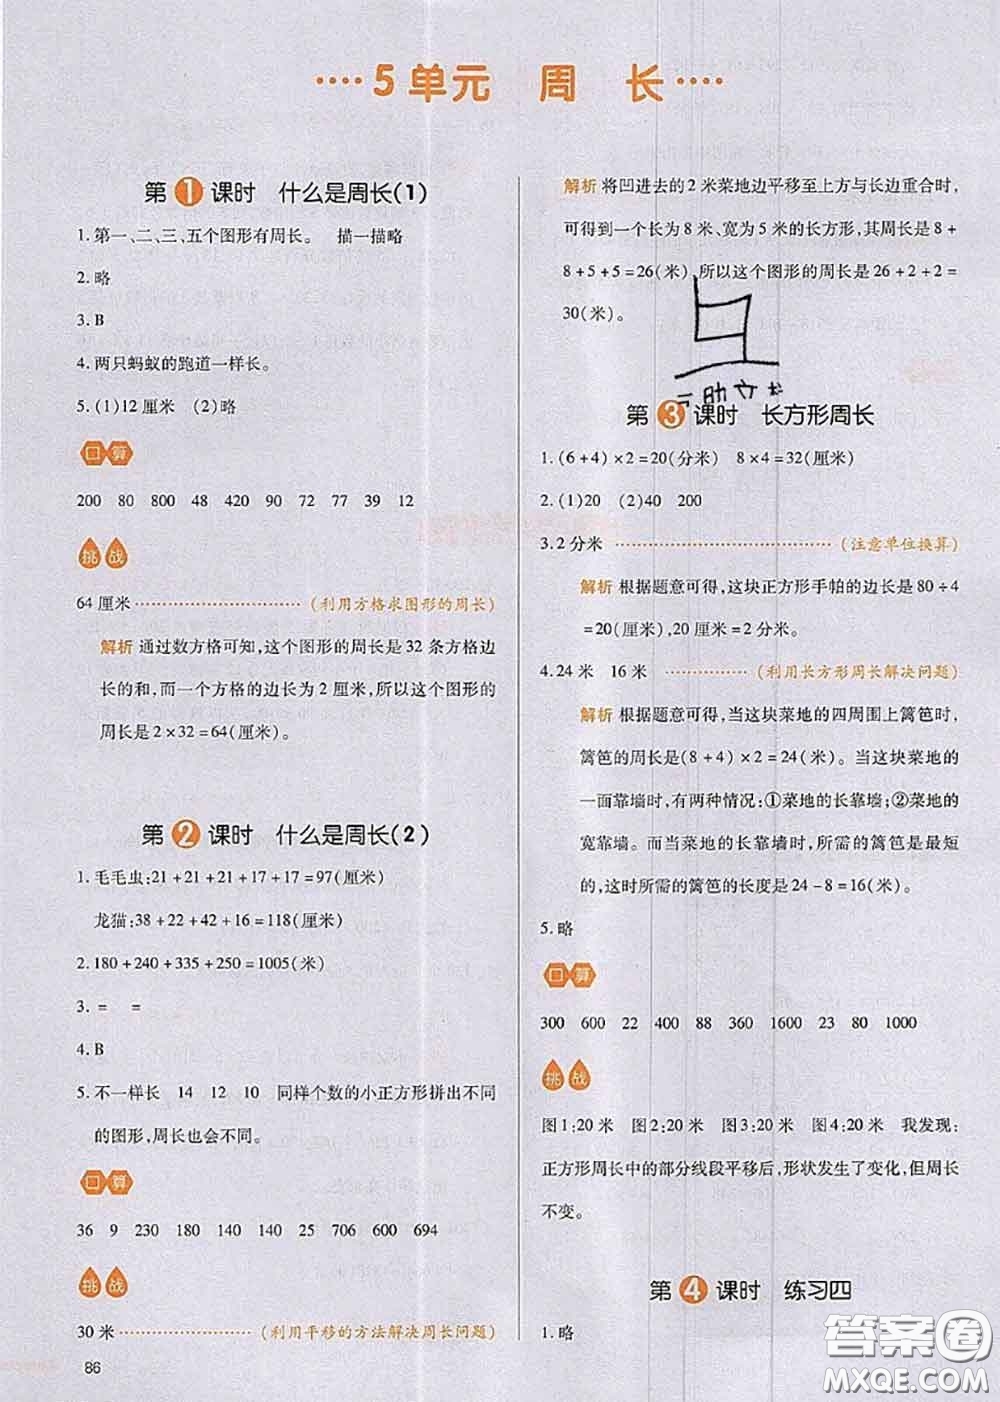 5单元 周 长
第1课时 什么是周长(1)
1.第一、二、三、五个图形有周长。 描一描略
2.略
3.B
4.两只蚂蚁的跑道一样长。
5.(1)12厘米 (2)略
口算
200 80 800 48 420 90 72 77 39 12
挑战
64厘米 (利用方格求图形的周长)
解析 通过数方格可知,这个图形的周长是32条方格边
长的和,而一个方格的边长为2厘米,所以这个图形的
周长是2×32=64(厘米)。
第2课时 什么是周长(2)
1.毛毛虫:21+21+21+17+17=97(厘米)
龙猫:38+22+42+16=118(厘米)
2.180+240+335+250=1005(米)
3.= =
4.B
5.不一样长 14 12 10 同样个数的小正方形拼出不同
的图形,周长也会不同。
口算
36 9 230 180 140 140 25 706 600 694
挑战
30米 (利用平移的方法解决周长问题)
86
解析 将凹进去的2米菜地边平移至上方与长边重合时,
可得到一个长为8米、宽为5米的长方形,其周长是8+
8+5+5=26(米),所以这个图形的周长是26+2+2=
30(米)。
第3课时 长方形周长
1.(6+4)×2=20(分米) 8×4=32(厘米)
2.(1)20 (2)40 200
3.2分米 (注意单位换算)
解析 根据题意可得,这块正方形手帕的边长是80÷4
=20(厘米),20厘米=2分米。
4.24米 16米 (利用长方形周长解决问题)
解析 根据题意可得,当这块菜地的四周围上篱笆时,
篱笆的周长是(8+4)×2=24(米)。当这块菜地的
一面靠墙时,有两种情况:①菜地的长靠墙;②菜地的
宽靠墙。当菜地的长靠墙时,所需的篱笆是最短
的,这时所需的篱笆的长度是24-8=16(米)。
5.略
口算
300 600 22 400 88 360 1600 23 80 1000
挑战
图1:20米 图2:20米 图3:20米 图4:20米 我发现:
正方形周长中的部分线段平移后,形状发生了变化,但周长
不变。
第4课时 练习四
1.略
答案圈
MXQE.COM